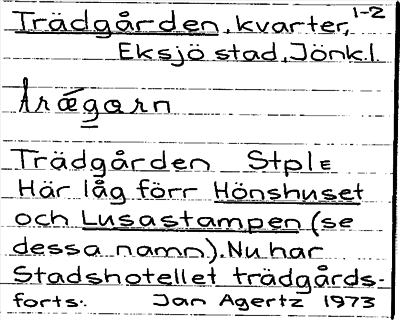 1-2
Trädgården, kvarter,
Eksjö stad, Jönk.l.
Trädgården Stpl E
Här låg förr Hönshuset
och Lusastampen (se
dessa namn). Nu har
Stadshotellet trädgårds-
forts. Jan Agertz 1973